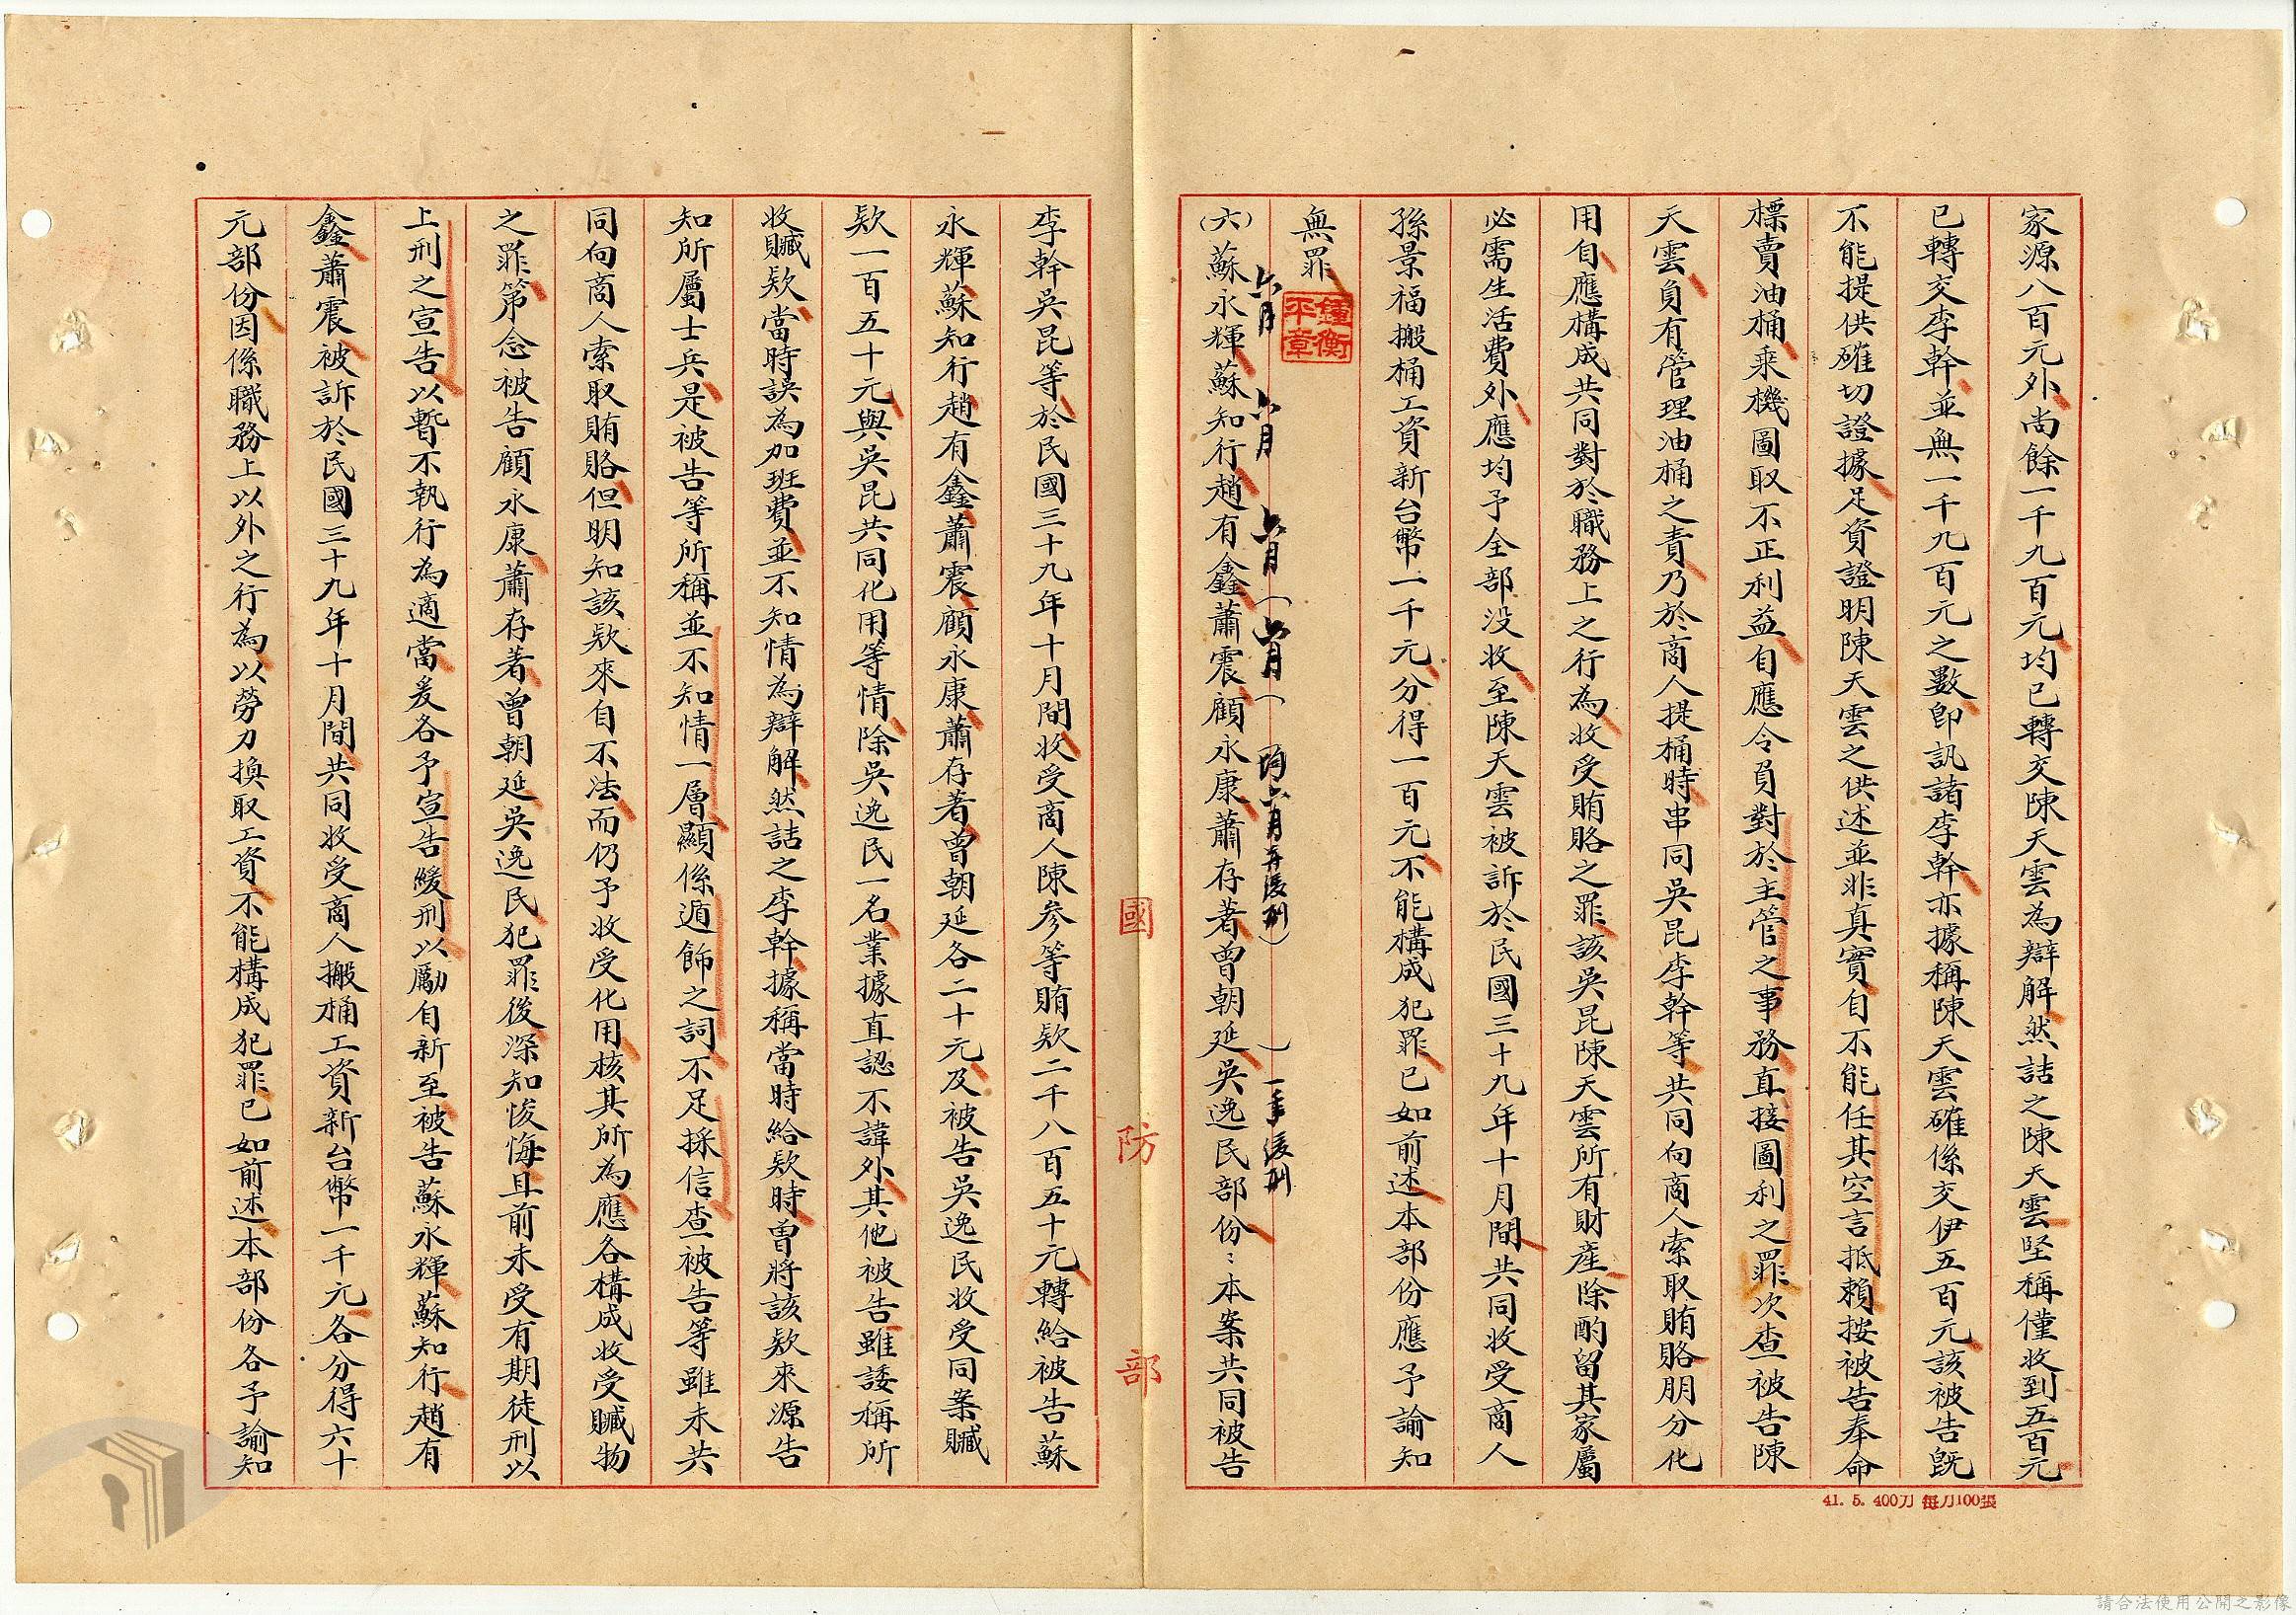 家源八百元外尚餘一千九百元均已轉交陳天雲為辯解然詰之陳天雲堅稱僅收到五百元
已轉交李幹並無一千九百元之數即訊諸李幹亦據稱陳天雲確係交伊五百元該被告既
不能提供確切證據足資證明陳天雲之供述並非真實自不能任其空言抵賴按被告奉命
標賣油桶乘機圖取不正利益自應令負對於主管之事務直接圖利之罪次查被告陳
天雲負有管理油桶之責乃於商人提桶時串同吳昆李幹等共同向商人索取賄賂朋分化
用自應構成共同對於職務上之行為收受賄賂之罪該吳昆陳天雲所有財產除酌留其家屬
必需生活費外應均予全部沒收至陳天雲被訴於民國三十九年十月間共同收受商人
孫景福搬桶工資新台幣一千元分得一百元不能構成犯罪已如前述本部份應予諭知
無罪
鍾衡平章
六月 六月 六月 六月 均六月弄緩刑 一年緩刑
(六)蘇永輝蘇知行趙有鑫蕭震顧永康蕭存著曾朝延吳逸民部份：本案共同被告
國防部
李幹吳昆等於民國三十九年十月間收受商人陳參等賄款二千八百五十元轉給被告蘇
永輝蘇知行趙有鑫蕭震顧永康蕭存著曾朝延各二十元及被告吳逸民收受同案贓
款一百五十元與吳昆共同化用等情除吳逸民一名業據直認不諱外其他被告雖諉稱所
收贓款當時誤為加班費並不知情為辯解然詰之李幹據稱當時給款時曾將該款來源告
知所屬士兵是被告等所稱並不知情一層顯係遁飾之詞不足採信查被告等雖未共
同向商人索取賄賂但明知該款來自不法而仍予收受化用核其所為應各構成收受贓物
之罪第念被告顧永康蕭存著曾朝延吳逸民犯罪後深知悛悔且前未受有期徒刑以
上刑之宣告以暫不執行為適當爰各予宣告緩刑以勵自新至被告蘇永輝蘇知行趙有
鑫蕭震被訴於民國三十九年十月間共同收受商人搬桶工資新台幣一千元各分得六十
元部份因係職務上以外之行為以勞力換取工資不能構成犯罪已如前述本部份各予諭知
41. 5. 400刀 每刀100張
請合法使用公開之影像